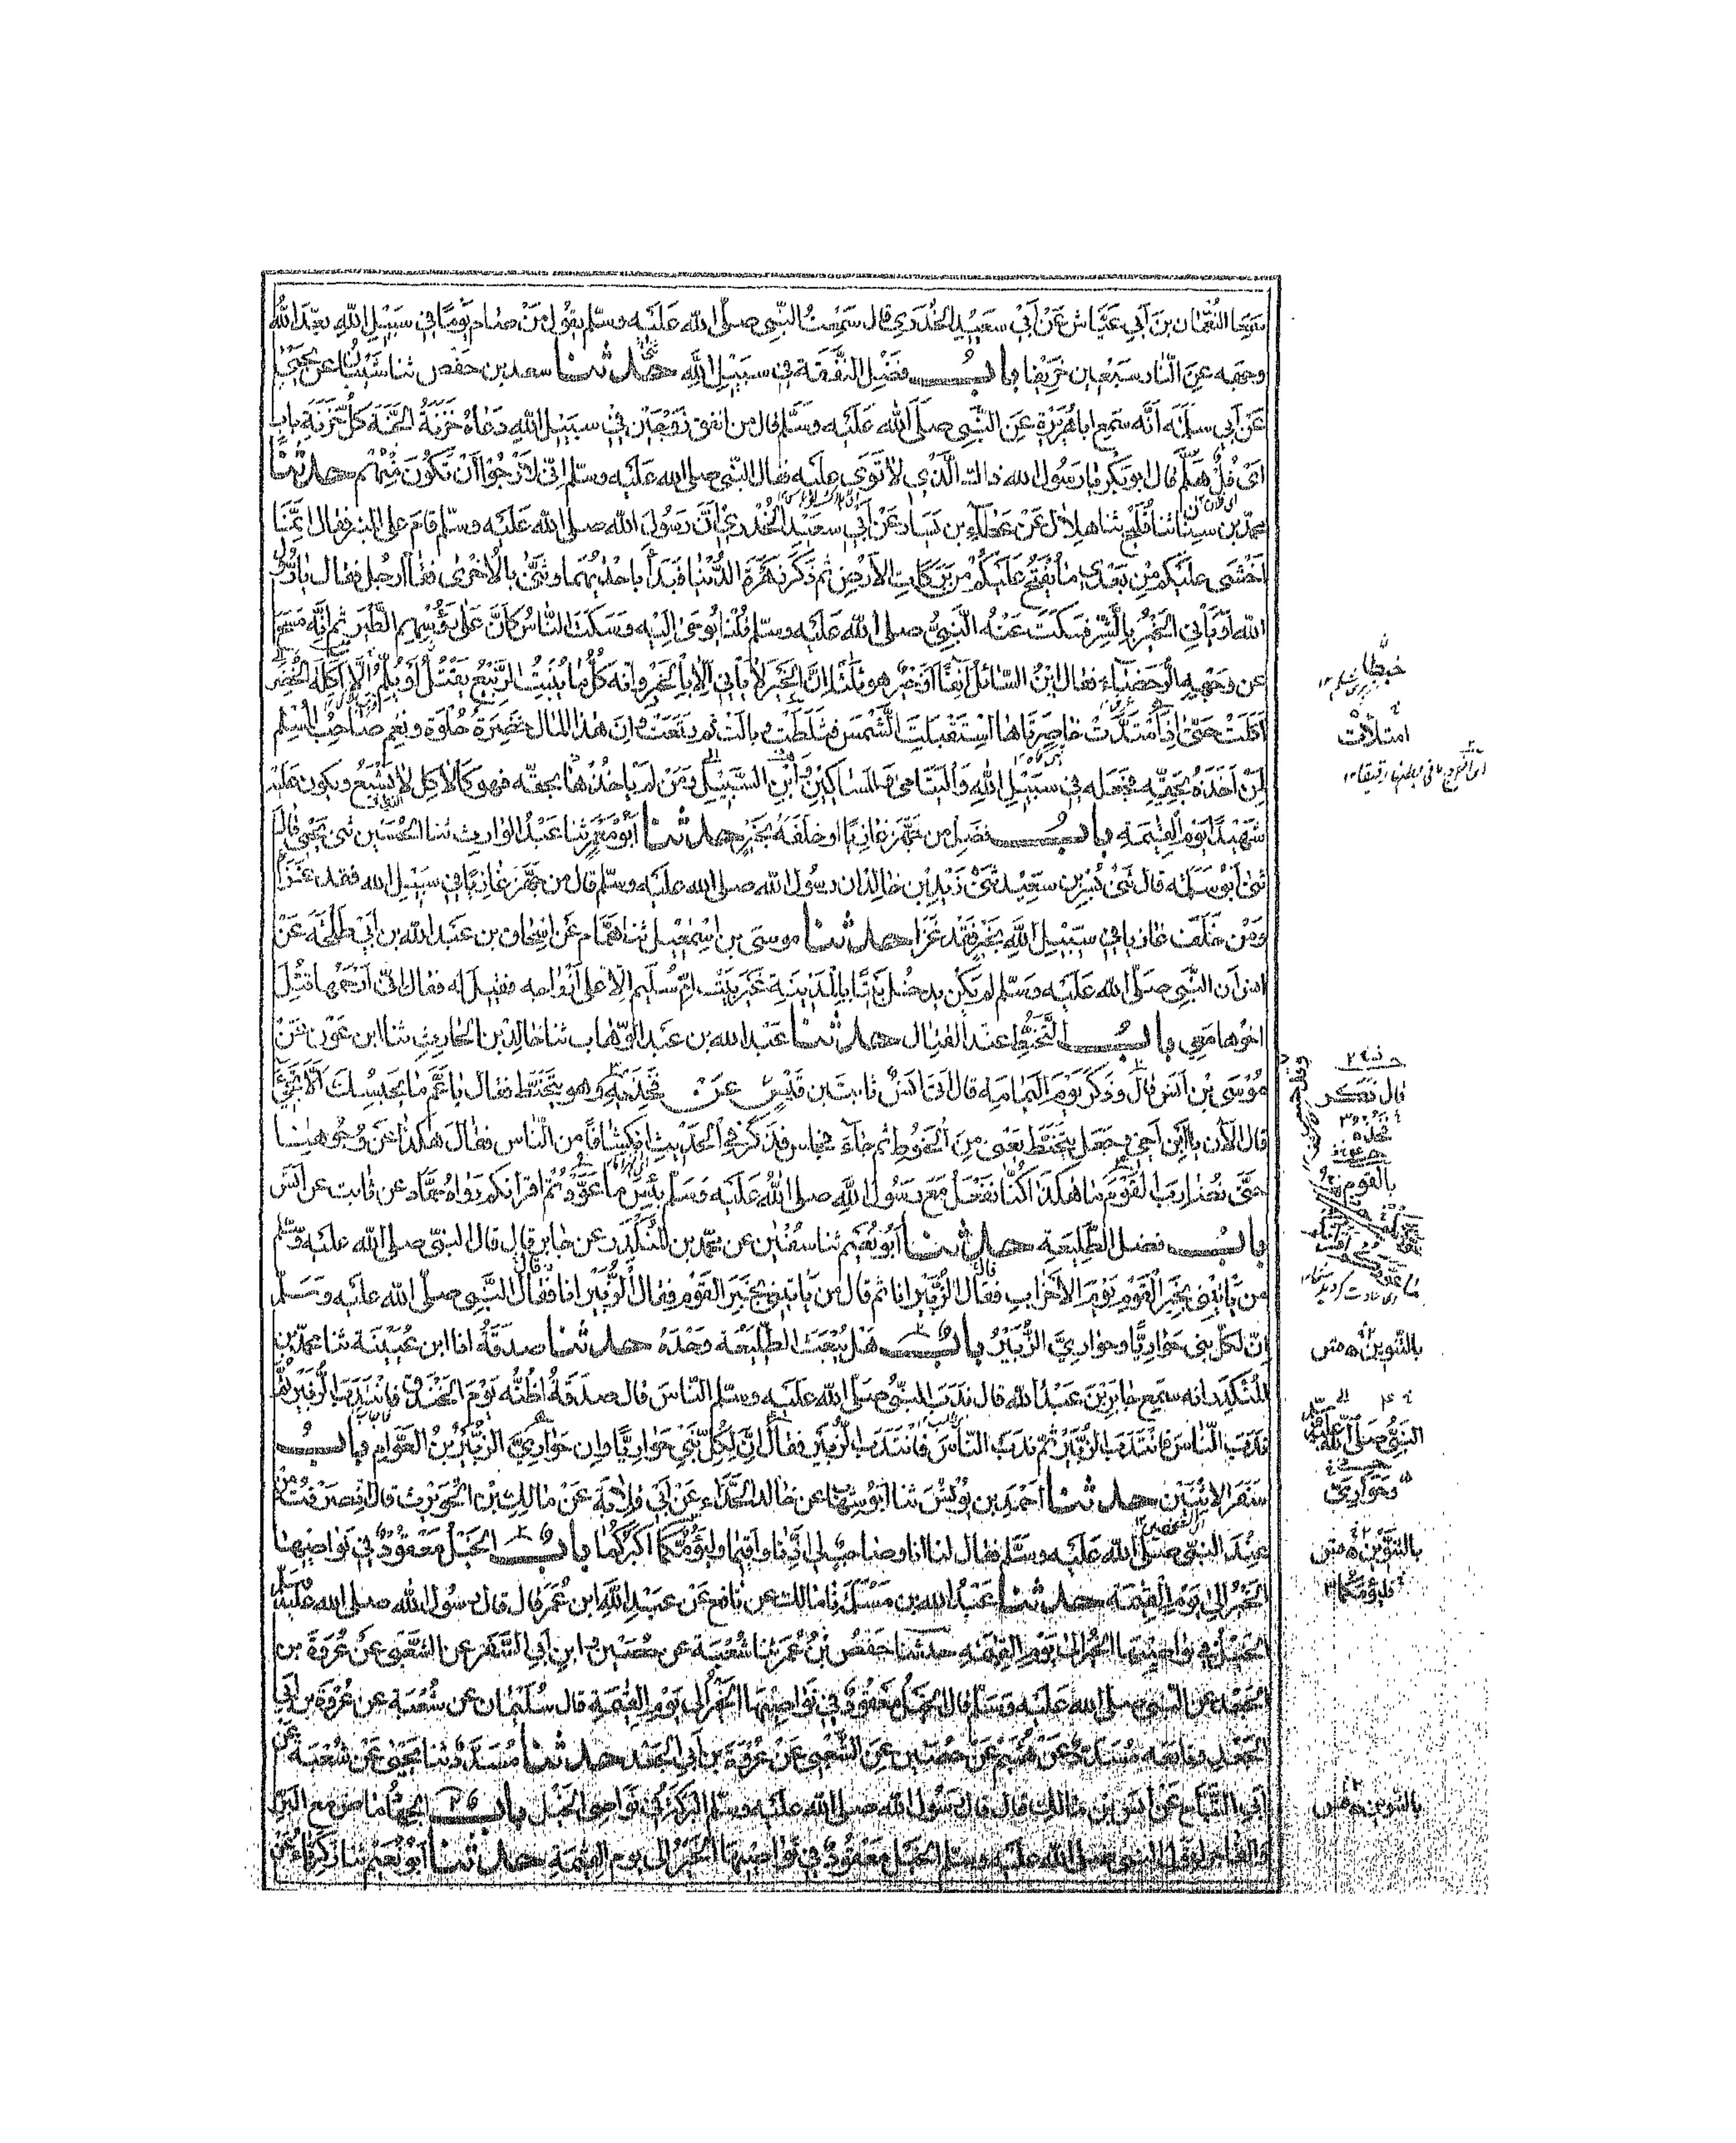 سمعا النعمان بن ابي عياش عن ابي سعيد الخدري قال سمعت النبي صلى الله عليه وسلم يقول من صام يوما في سبيل الله بعد الله
وجهه عن النار سبعين خريفا باب فضل النفقة في سبيل الله حدثنا سعد بن حفص ثنا شيبان عن يحيى
عن ابي سلمة انه سمع ابا هريرة عن النبي صلى الله عليه وسلم قال من انفق زوجين في سبيل الله دعاه خزنة الجنة كل خزنة باب
اي فل هلم قال ابو بكر يا رسول الله ذاك الذي لا توى عليه فقال النبي صلى الله عليه وسلم اني لارجو ان تكون منهم حدثنا
محمد بن سنان ثنا فليح ثنا هلال عن عطاء بن يسار عن ابي سعيد الخدري ان رسول الله صلى الله عليه وسلم قام على المنبر فقال انما
اخشى عليكم من بعدي ما يفتح عليكم من بركات الارض ثم ذكر زهرة الدنيا فبدأ باحداهما وثنى بالاخرى فقام رجل فقال يا رسول
الله اوياتي الخير بالشر فسكت عنه النبي صلى الله عليه وسلم قلنا يوحى اليه وسكت الناس كان على رؤسهم الطير ثم انه مسح
عن وجهه الرحضاء فقال اين السائل انفا اوخير هو ثلثا ان الخير لا ياتي الا بالخير وانه كل ما ينبت الربيع يقتل او يلم الا اكلة الخضر
اكلت حتى اذا امتدت خاصرتاها استقبلت الشمس فثلطت وبالت ثم رتعت وان هذا المال خضرة حلوة ونعم صاحب المسلم
لمن اخذه بحقه فجعله في سبيل الله واليتامى والمساكين وابن السبيل ومن لم ياخذها بحقه فهو كالاكل لا يشبع ويكون عليه
شهيدا يوم القيمة باب فضل من جهز غازيا او خلفه بخير حدثنا ابو معمر ثنا عبد الوارث ثنا الحسين ثني يحيى قال
ثني ابو سلمة قال ثني بسر بن سعيد ثني زيد بن خالد ان رسول الله صلى الله عليه وسلم قال من جهز غازيا في سبيل الله فقد غزا
ومن خلف غازيا في سبيل الله بخير فقد غزا حدثنا موسى بن اسمعيل ثنا همام عن اسحاق بن عبد الله بن ابي طلحة عن
انس ان النبي صلى الله عليه وسلم لم يكن يدخل بيتا بالمدينة غير بيت ام سليم الا على ازواجه فقيل له فقال اني ارحمها قتل
اخوها معي باب التحنط عند القتال حدثنا عبد الله بن عبد الوهاب ثنا خالد بن الحارث ثنا ابن عون عن
موسى بن انس قال وذكر يوم اليمامة قال اتى انس ثابت بن قيس عن فخذيه وهو يتحنط فقال يا عم ما يحبسك الا تجئ
قال الان يا ابن اخي وجعل يتحنط يعني من الحنوط ثم جاء فجلس فذكر في الحديث انكشافا من الناس فقال هكذا عن وجوهنا
حتى نضارب القوم ما هكذا كنا نفعل مع رسول الله صلى الله عليه وسلم بئس ما عودتم اقرانكم رواه حماد عن ثابت عن انس
باب فضل الطليعة حدثنا ابو نعيم ثنا سفين عن محمد بن المنكدر عن جابر قال قال النبي صلى الله عليه وسلم
من ياتيني بخبر القوم يوم الاحزاب فقال الزبير انا ثم قال من ياتيني بخبر القوم فقال الزبير انا فقال النبي صلى الله عليه وسلم
ان لكل نبي حواريا وحواري الزبير باب هل يبعث الطليعة وحده حدثنا صدقة انا ابن عيينة ثنا محمد بن
المنكدر انه سمع جابر بن عبد الله قال ندب النبي صلى الله عليه وسلم الناس قال صدقة اظنه يوم الخندق فانتدب الزبير ثم
ندب الناس فانتدب الزبير ثم ندب الناس فانتدب الزبير فقال ان لكل نبي حواريا وان حواري الزبير بن العوام باب
سفر الاثنين حدثنا احمد بن يونس ثنا ابو شهاب عن خالد الحذاء عن ابي قلابة عن مالك بن الحويرث قال انصرفت من
عند النبي صلى الله عليه وسلم فقال لنا انا وصاحب لي اذنا واقيما وليؤمكما اكبركما باب الخيل معقود في نواصيها
الخير الى يوم القيمة حدثنا عبد الله بن مسلمة ثنا مالك عن نافع عن عبد الله ابن عمر قال قال رسول الله صلى الله عليه وسلم
الخيل في نواصيها الخير الى يوم القيمة حدثنا حفص بن عمر ثنا شعبة عن حصين وابن ابي السفر عن الشعبي عن عروة بن
الجعد عن النبي صلى الله عليه وسلم قال الخيل معقود في نواصيها الخير الى يوم القيمة قال سليمان عن شعبة عن عروة بن ابي
الجعد وتابعه مسدد عن هشيم عن حصين عن الشعبي عن عروة بن ابي الجعد حدثنا مسدد ثنا يحيى عن شعبة عن
ابي التياح عن انس بن مالك قال قال رسول الله صلى الله عليه وسلم البركة في نواصي الخيل باب الجهاد ماض مع البر
والفاجر لقول النبي صلى الله عليه وسلم الخيل معقود في نواصيها الخير الى يوم القيمة حدثنا ابو نعيم ثنا زكرياء عن
خبطا
امتلات
قال
بالقوم
بالتنوين
النبي صلى الله عليه
وحواري
بالتنوين
فليؤمكما
بالتنوين